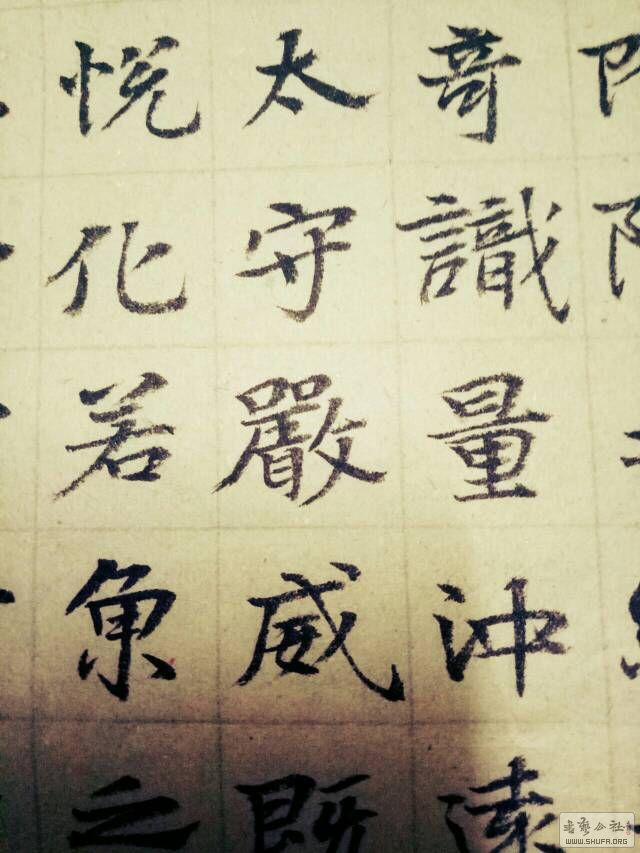 竒識量沖遠
太守嚴威既
悦化若魚之
書藝公社
WWW.SHUFA.ORG